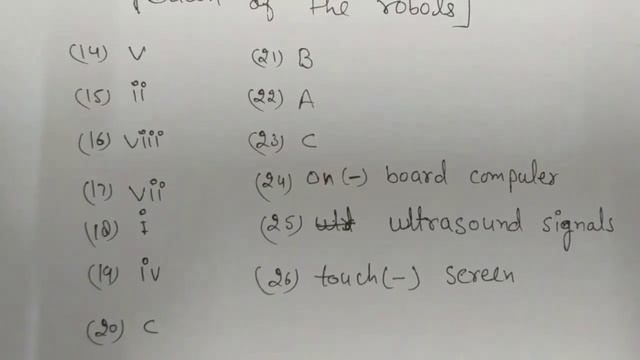 of the robods]
(14) v
(15) ii
(16) viii
(17) vii
(18) i
(19) iv
(20) C
(21) B
(22) A
(23) C
(24) on(-) board computer
(25) ultrasound signals
(26) touch(-) screen